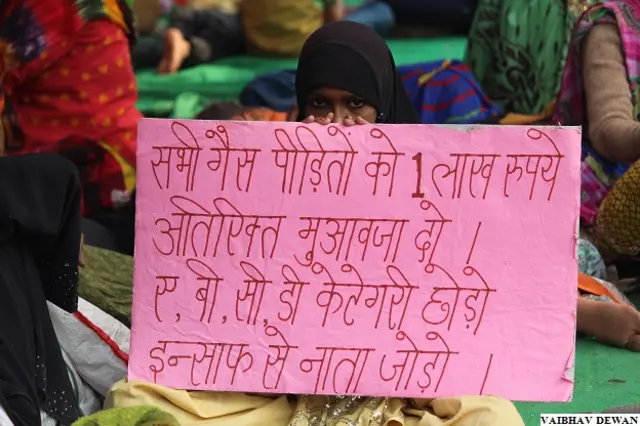 सभी गैस पीड़ितो को 1 लाख रुपये
अतिरिक्त मुआवजा दो ।
ए, बी, सी, डी केटेगरी छोड़ो
इन्साफ से नाता जोड़ो ।
VAIBHAV DEWAN